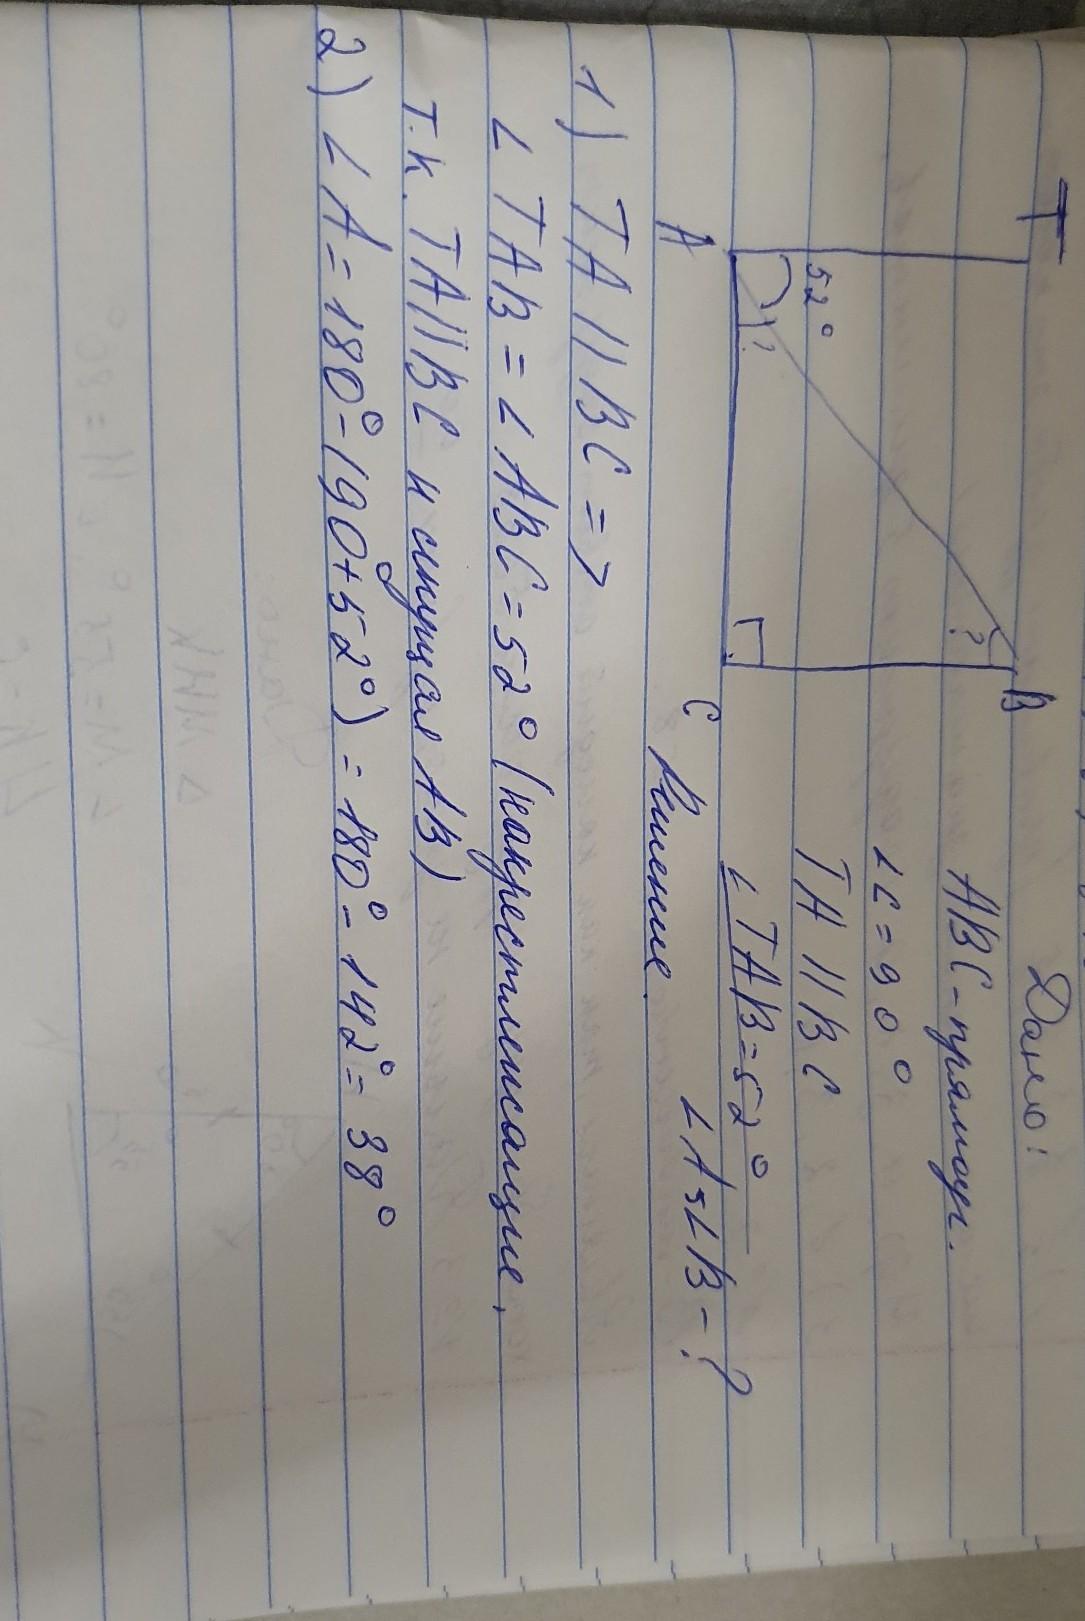 Дано:
ABC - прямоуг.
∠C = 90°
TA || BC
∠TAB = 52°
∠A, ∠B - ?
T
B
52°
?
?
A
C
Решение
1) TA || BC =>
∠ TAB = ∠ ABC = 52° (накрестлежащие,
т.к. TA||BC и секущая AB)
2) ∠ A = 180° - (90 + 52°) = 180° - 142° = 38°